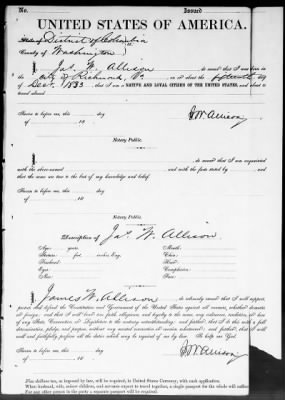 No. Issued
UNITED STATES OF AMERICA.
State of District of Columbia
County of Washington }
I Jas. W. Allison, do swear that I was born in
the City of Richmond, Va. on or about the fifteenth day
of Dec. 1833, that I am a NATIVE AND LOYAL CITIZEN OF THE UNITED STATES, and about to
travel abroad.
Sworn to before me this day
of 18 J. W. Allison
Notary Public.
I do swear that I am acquainted
with the above-named and with the facts stated by
that the same are true to the best of my knowledge and belief.
Sworn to before me this day
of 18
Notary Public.
Description of Jas. W. Allison.
Age: years. Mouth:
Stature: feet inches Eng. Chin:
Forehead: Hair:
Eyes: Complexion:
Nose: Face:
I James W. Allison do solemnly swear that I will support,
protect and defend the Constitution and Government of the United States against all enemies, whether domestic
or foreign; and that I will bear true faith, allegiance and loyalty to the same, any ordinance, resolution or law
of any State Convention or Legislature to the contrary notwithstanding; and further, that I do this with a full
determination, pledge and purpose, without any mental reservation or evasion whatsoever; and further, that I will
well and faithfully perform all the duties which may be required of me by law. So help me God.
Sworn to before me this day J. W. Allison
of 18
Notary Public.
Five dollars tax, as imposed by law, will be required, in United States Currency, with each application.
When husband, wife, minor children, and servants expect to travel together, a single passport for the whole will suffice.
For any other person in the party a separate passport will be required.